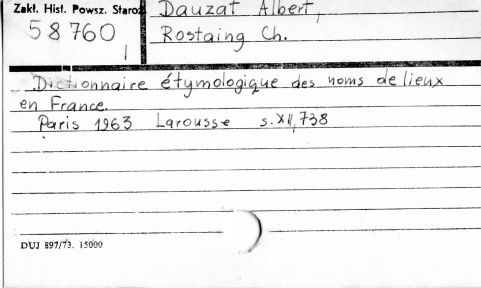 Zakł. Hist. Powsz. Staroż.
58760
I
Dauzat Albert,
Rostaing Ch.
Dictionnaire étymologique des noms de lieux
en France.
Paris 1963 Larousse s. XII, 738
DUJ 897/73. 15000